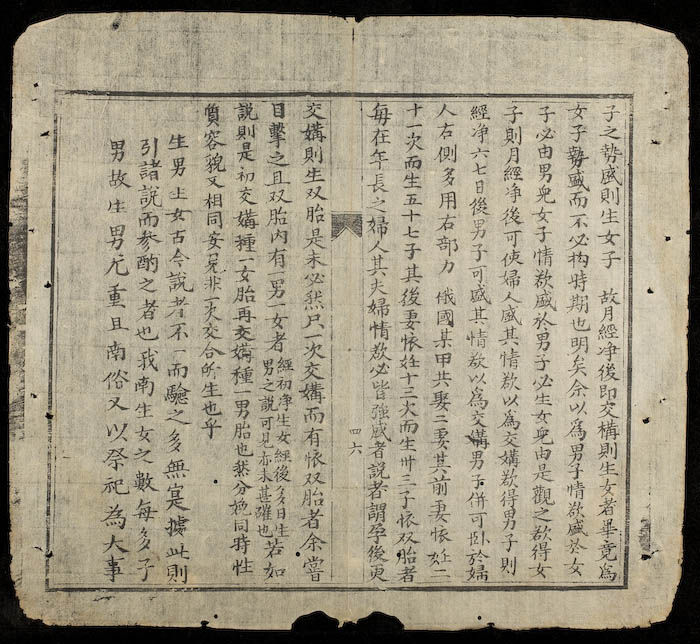 子之勢盛則生女子 故月經净後即交構則生女者畢竟為
女子勢盛而不必拘時期也明矣余以為男子情欲盛於女
子必由男兒女子情欲盛於男子必生女兒由是觀之欲得女
子則月經净後可使婦人盛其情欲以為交媾欲得男子則
經净六七日後男子可盛其情欲以為交媾男子併可卧於婦
人右側多用右部力 俄國某甲共娶二妻其前妻懷妊二
十一次而生五十七子其後妻懷妊十三次而生卅三子懷双胎者
每在年長之婦人其夫婦情欲必皆強盛者説者謂孕後更
四六
交媾則生双胎是未必然只一次交媾而有懷双胎者余嘗
目擊之且双胎内有一男一女者經初净生女經後多日生男之説可見亦未甚確也若如
説則是初交媾種一女胎再交媾種一男胎也然分娩同時性
質容貌又相同妄見非一次交合所生也乎
生男生女古今說者不一而驗之多無寔據此則
引諸說而參酌之者也我南生女之數每多子
男故生男尤重且南俗又以祭祀為大事